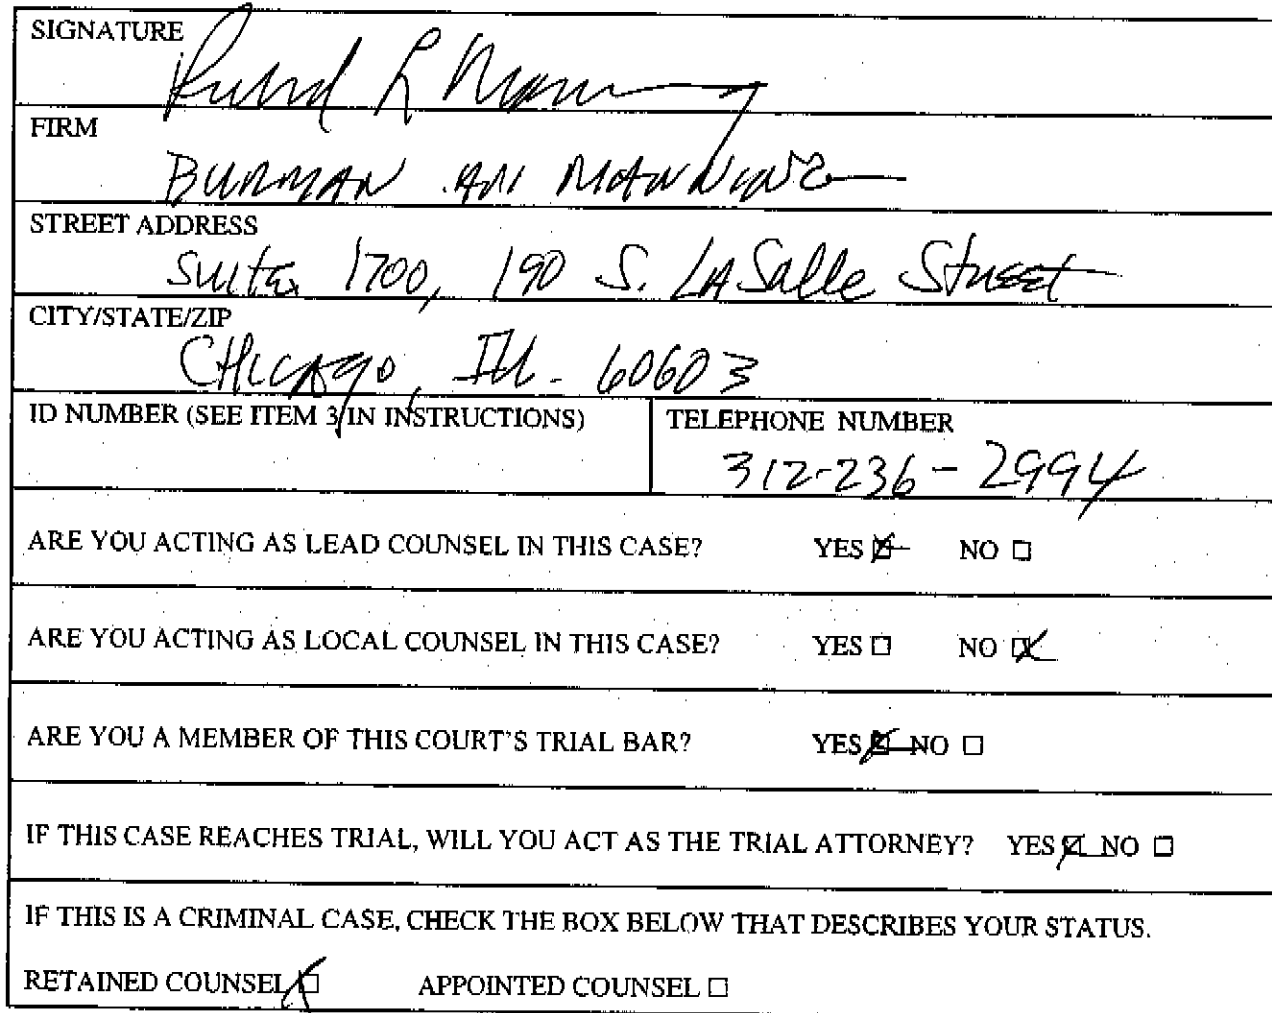 SIGNATURE
L
FIRM
BURMAN AND MANNING
STREET ADDRESS
Suite 1700, 190 S. LaSalle Street
CITY/STATE/ZIP
CHICAgo, Ill. 60603
ID NUMBER (SEE ITEM 3 IN INSTRUCTIONS) TELEPHONE NUMBER
312-236-2994
ARE YOU ACTING AS LEAD COUNSEL IN THIS CASE? YES ☒ NO ☐
ARE YOU ACTING AS LOCAL COUNSEL IN THIS CASE? YES ☐ NO ☒
ARE YOU A MEMBER OF THIS COURT'S TRIAL BAR? YES ☒ NO ☐
IF THIS CASE REACHES TRIAL, WILL YOU ACT AS THE TRIAL ATTORNEY? YES ☒ NO ☐
IF THIS IS A CRIMINAL CASE, CHECK THE BOX BELOW THAT DESCRIBES YOUR STATUS.
RETAINED COUNSEL ☒ APPOINTED COUNSEL ☐